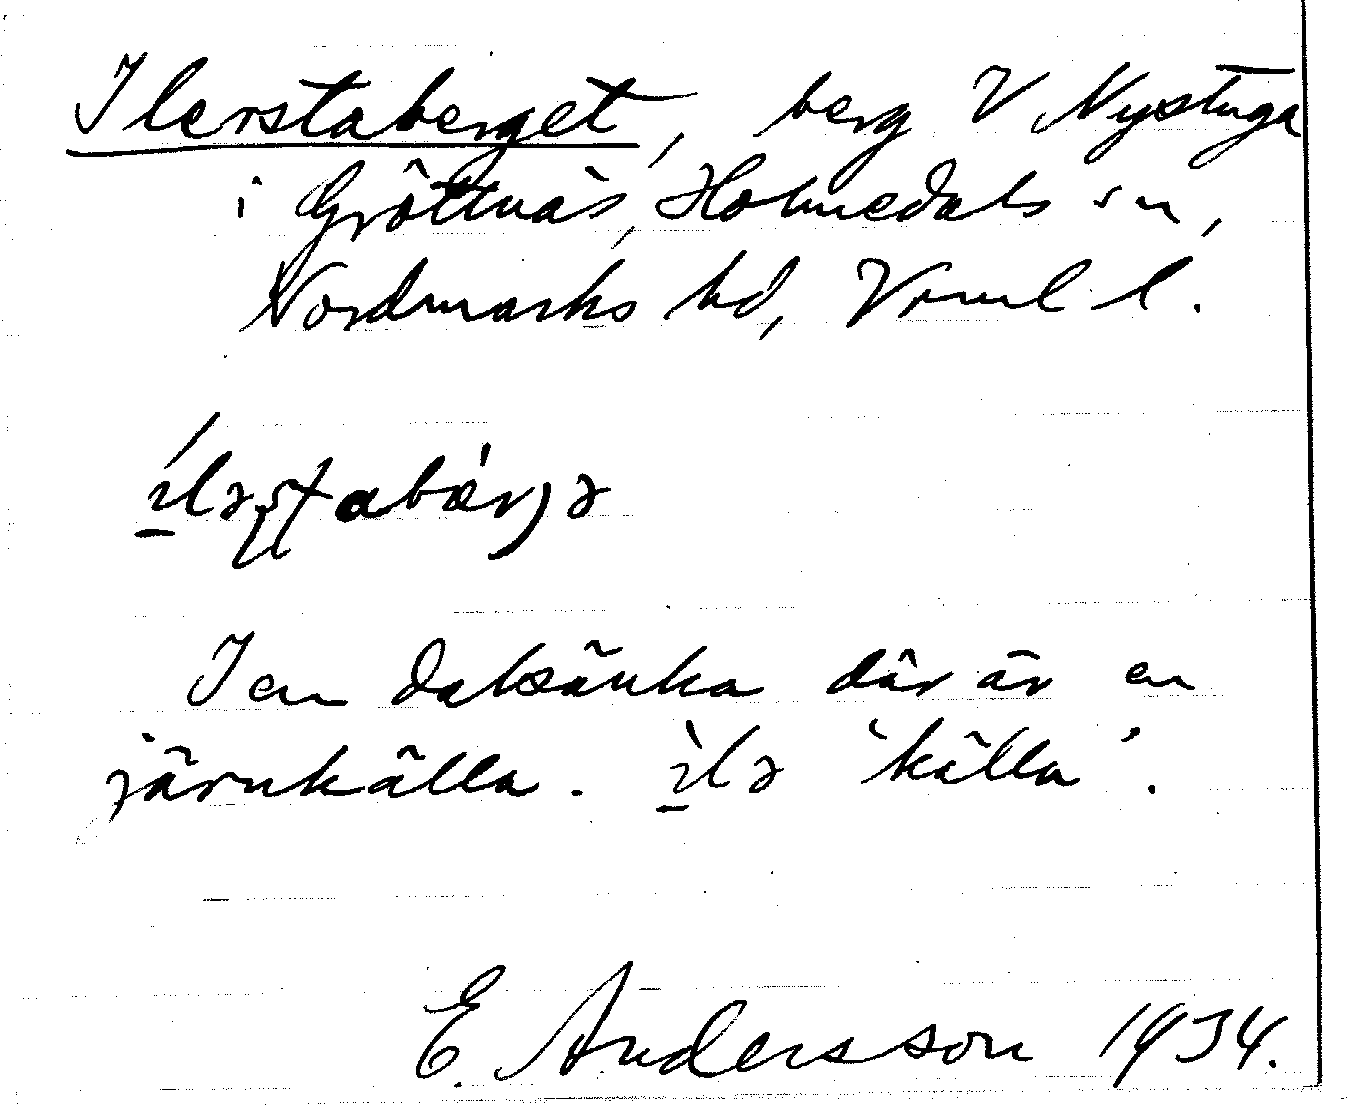 Ilerstaberget, berg V Nystuga
i Gröttnäs, Holmedals sn,
Nordmarks hd, Vrml l.
I en dalsänka där är en
järnkälla. ı̀lə 'källa'.
E. Andersson 1934.